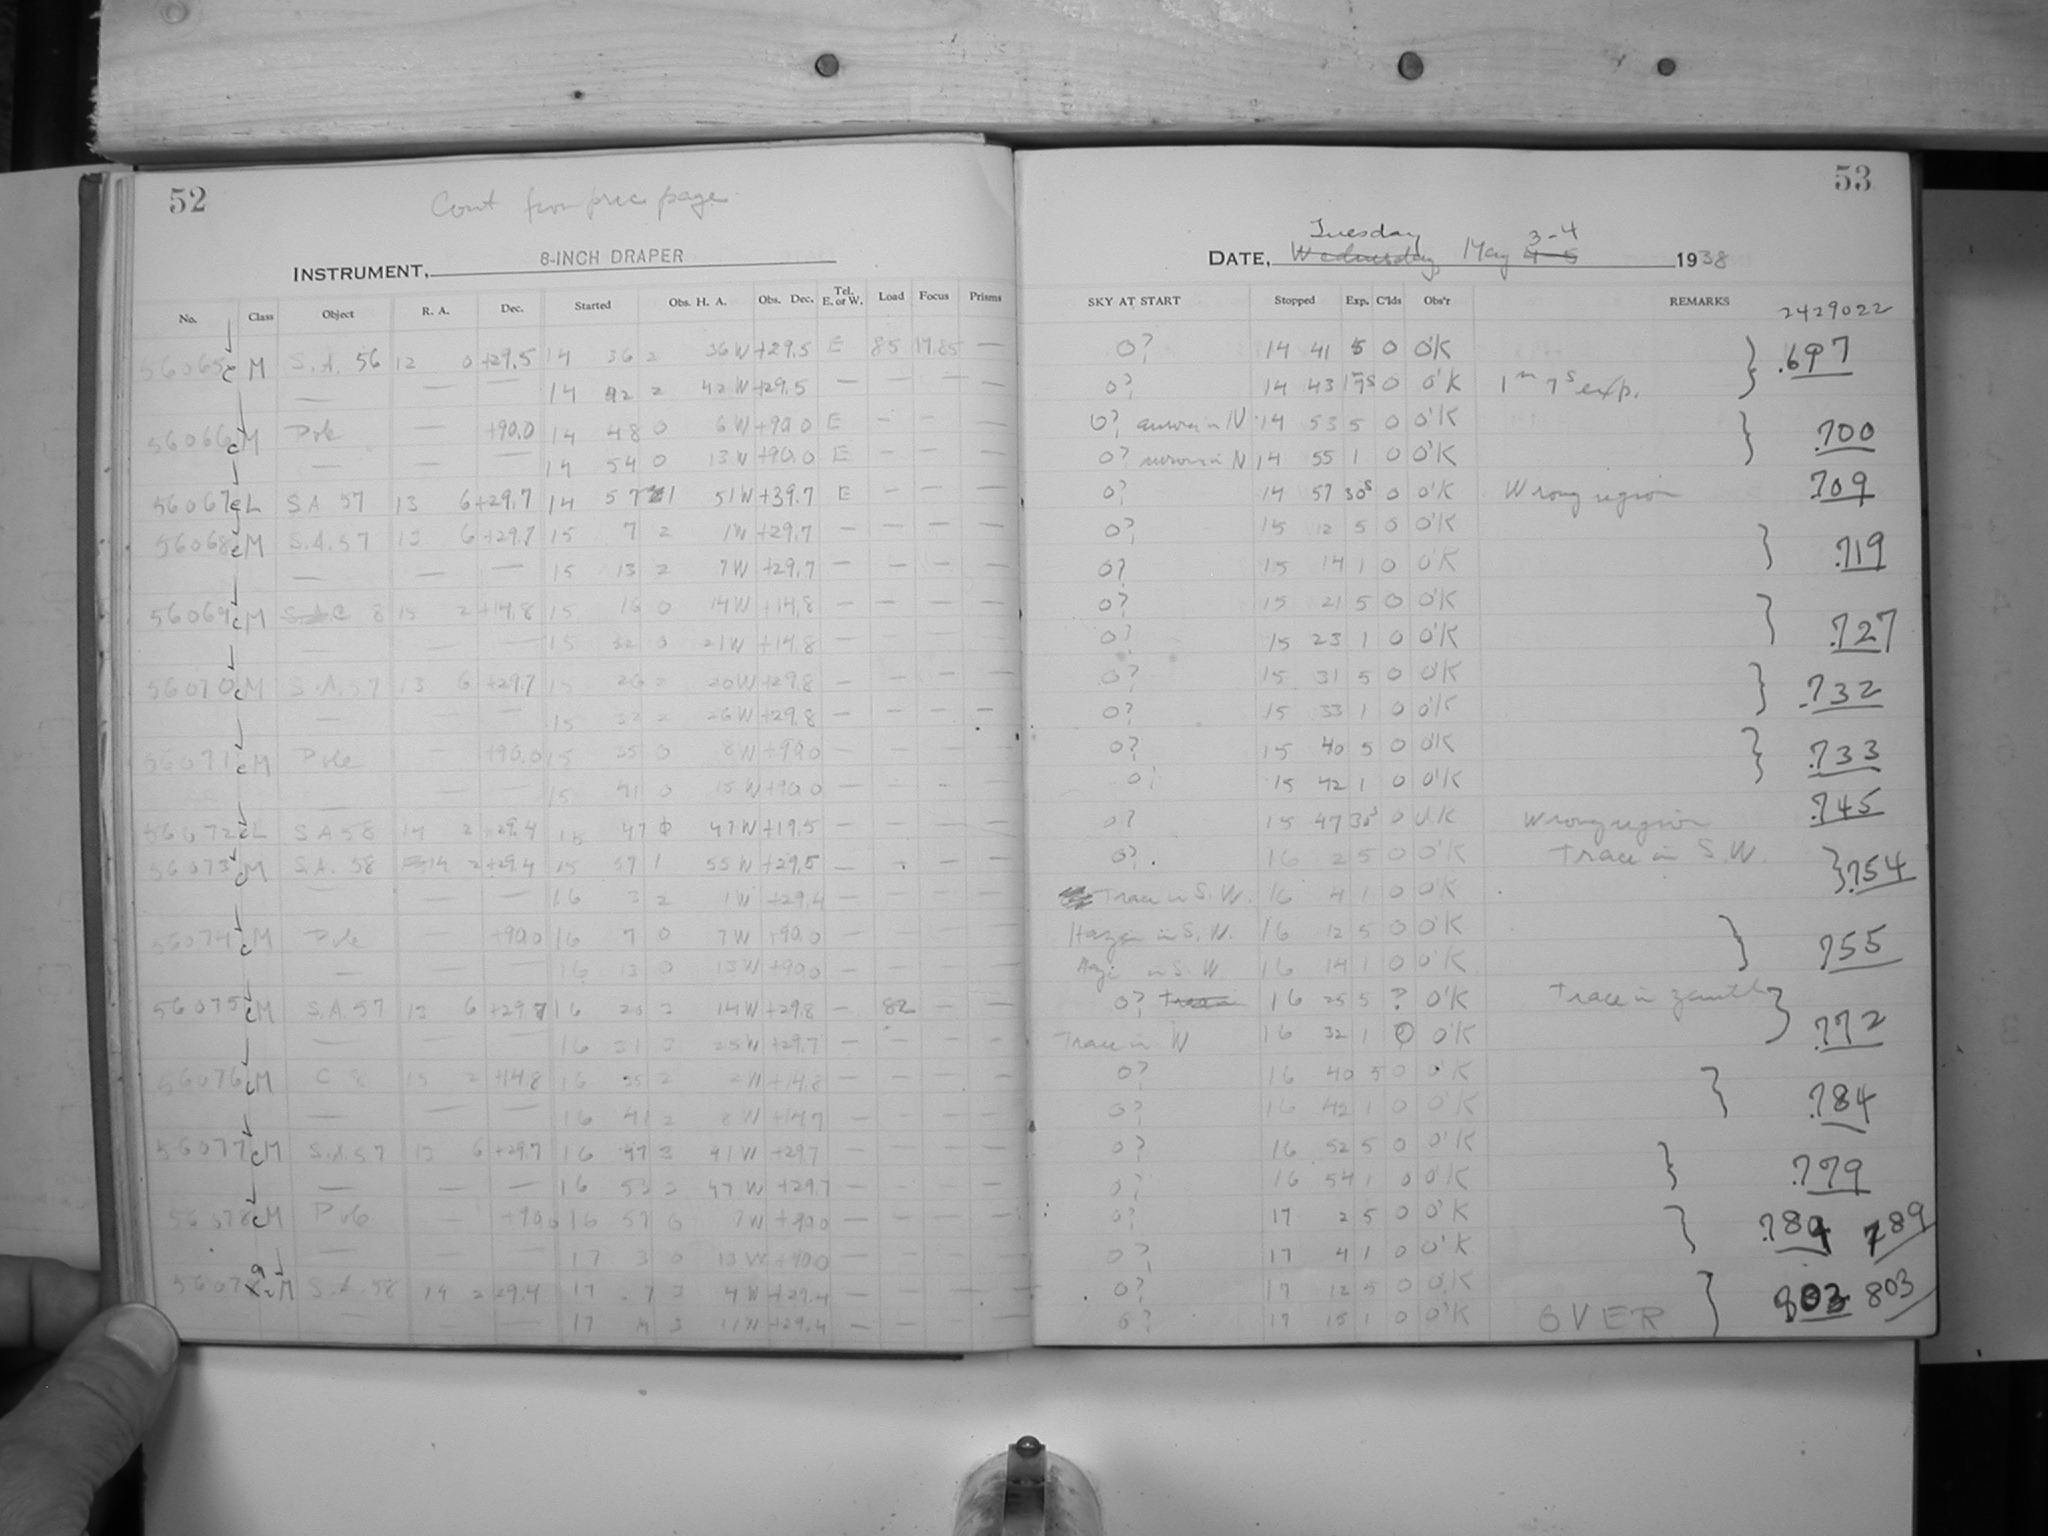 52
Cont from prec page
INSTRUMENT, 8-INCH DRAPER
No. Class Object R. A. Dec. Started Obs. H. A. Obs. Dec. Tel. E. or W. Load Focus Prisms
56065 c M S.A. 56 12 0 +29.5 14 36 2 36 W +29.5 E 85 19.85 —
— — — 14 42 2 42 W +29.5 — — — —
56066 c M Pole — +90.0 14 48 0 6 W +90.0 E — — —
— — — 14 54 0 13 W +90.0 E — — —
56067 c L S A 57 13 6 +29.7 14 57 1 51 W +39.7 E — — —
56068 c M S.A. 57 13 6 +29.7 15 7 2 1 W +29.7 — — — —
— — — 15 13 2 7 W +29.7 — — — —
56069 c M C 8 15 2 +14.8 15 16 0 14 W +14.8 — — — —
— — 15 22 0 21 W +14.8 — — — —
56070 c M S.A. 57 13 6 +29.7 15 26 2 20 W +29.8 — — — —
— 15 32 2 26 W +29.8 — — — —
56071 c M Pole — +90.0 15 35 0 8 W +90.0 — — — —
— — — 15 41 0 15 W +90.0 — — — —
56072 c L S A 58 14 2 +29.4 15 47 0 47 W +19.5 — — — —
56073 c M S.A. 58 14 2 +29.4 15 57 1 55 W +29.5 — — — —
— — — 16 3 2 1 W +29.4 — — — —
56074 c M Pole — +90.0 16 7 0 7 W +90.0 — — — —
— — — 16 13 0 13 W +90.0 — — — —
56075 c M S.A. 57 13 6 +29.7 16 20 3 14 W +29.8 — 82 — —
— — — 16 31 3 25 W +29.7 — — — —
56076 c M C 8 15 2 +14.8 16 35 2 2 W +14.8 — — — —
— — — 16 41 2 8 W +14.7 — — — —
56077 c M S.A. 57 13 6 +29.7 16 47 3 41 W +29.7 — — — —
— — — 16 53 3 47 W +29.7 — — — —
56078 c M Pole — +90.0 16 57 0 7 W +90.0 — — — —
— — — 17 3 0 13 W +90.0 — — — —
56079 c M S.A. 58 14 2 +29.4 17 7 3 4 W +29.4 — — — —
— — 17 3 11 W +29.4 — — — —
53
Tuesday 3-4
DATE, Wednesday May 4-5 1938
SKY AT START Stopped Exp. C'lds Obs'r REMARKS
2429022
0? 14 41 5 0 O'K .697
0? 14 43 1 7s 0 O'K 1m 7s exp.
0? aurora in N 14 53 5 0 O'K .700
0? aurora in N 14 55 1 0 O'K
0? 14 57 30s 0 O'K Wrong region .709
0? 15 12 5 0 O'K .719
0? 15 14 1 0 O'K
0? 15 21 5 0 O'K .727
0? 15 23 1 0 O'K
0? 15 31 5 0 O'K .732
0? 15 33 1 0 O'K
0? 15 40 5 0 O'K .733
0? 15 42 1 0 O'K
0? 15 47 30s 0 O'K Wrong region .745
0? 16 2 5 0 O'K Trace in S.W. .754
Trace in S.W. 16 4 1 0 O'K
Haze in S.W. 16 12 5 0 O'K .755
Haze in S.W 16 14 1 0 O'K
0? 16 25 5 ? O'K Trace in zenith .772
Trace in W 16 32 1 0 O'K
0? 16 40 5 0 O'K .784
0? 16 42 1 0 O'K
0? 16 52 5 0 O'K .779
0? 16 54 1 0 O'K
0? 17 2 5 0 O'K .789 789
0? 17 4 1 0 O'K
0? 17 12 5 0 O'K 803 803
0? 17 15 1 0 O'K OVER